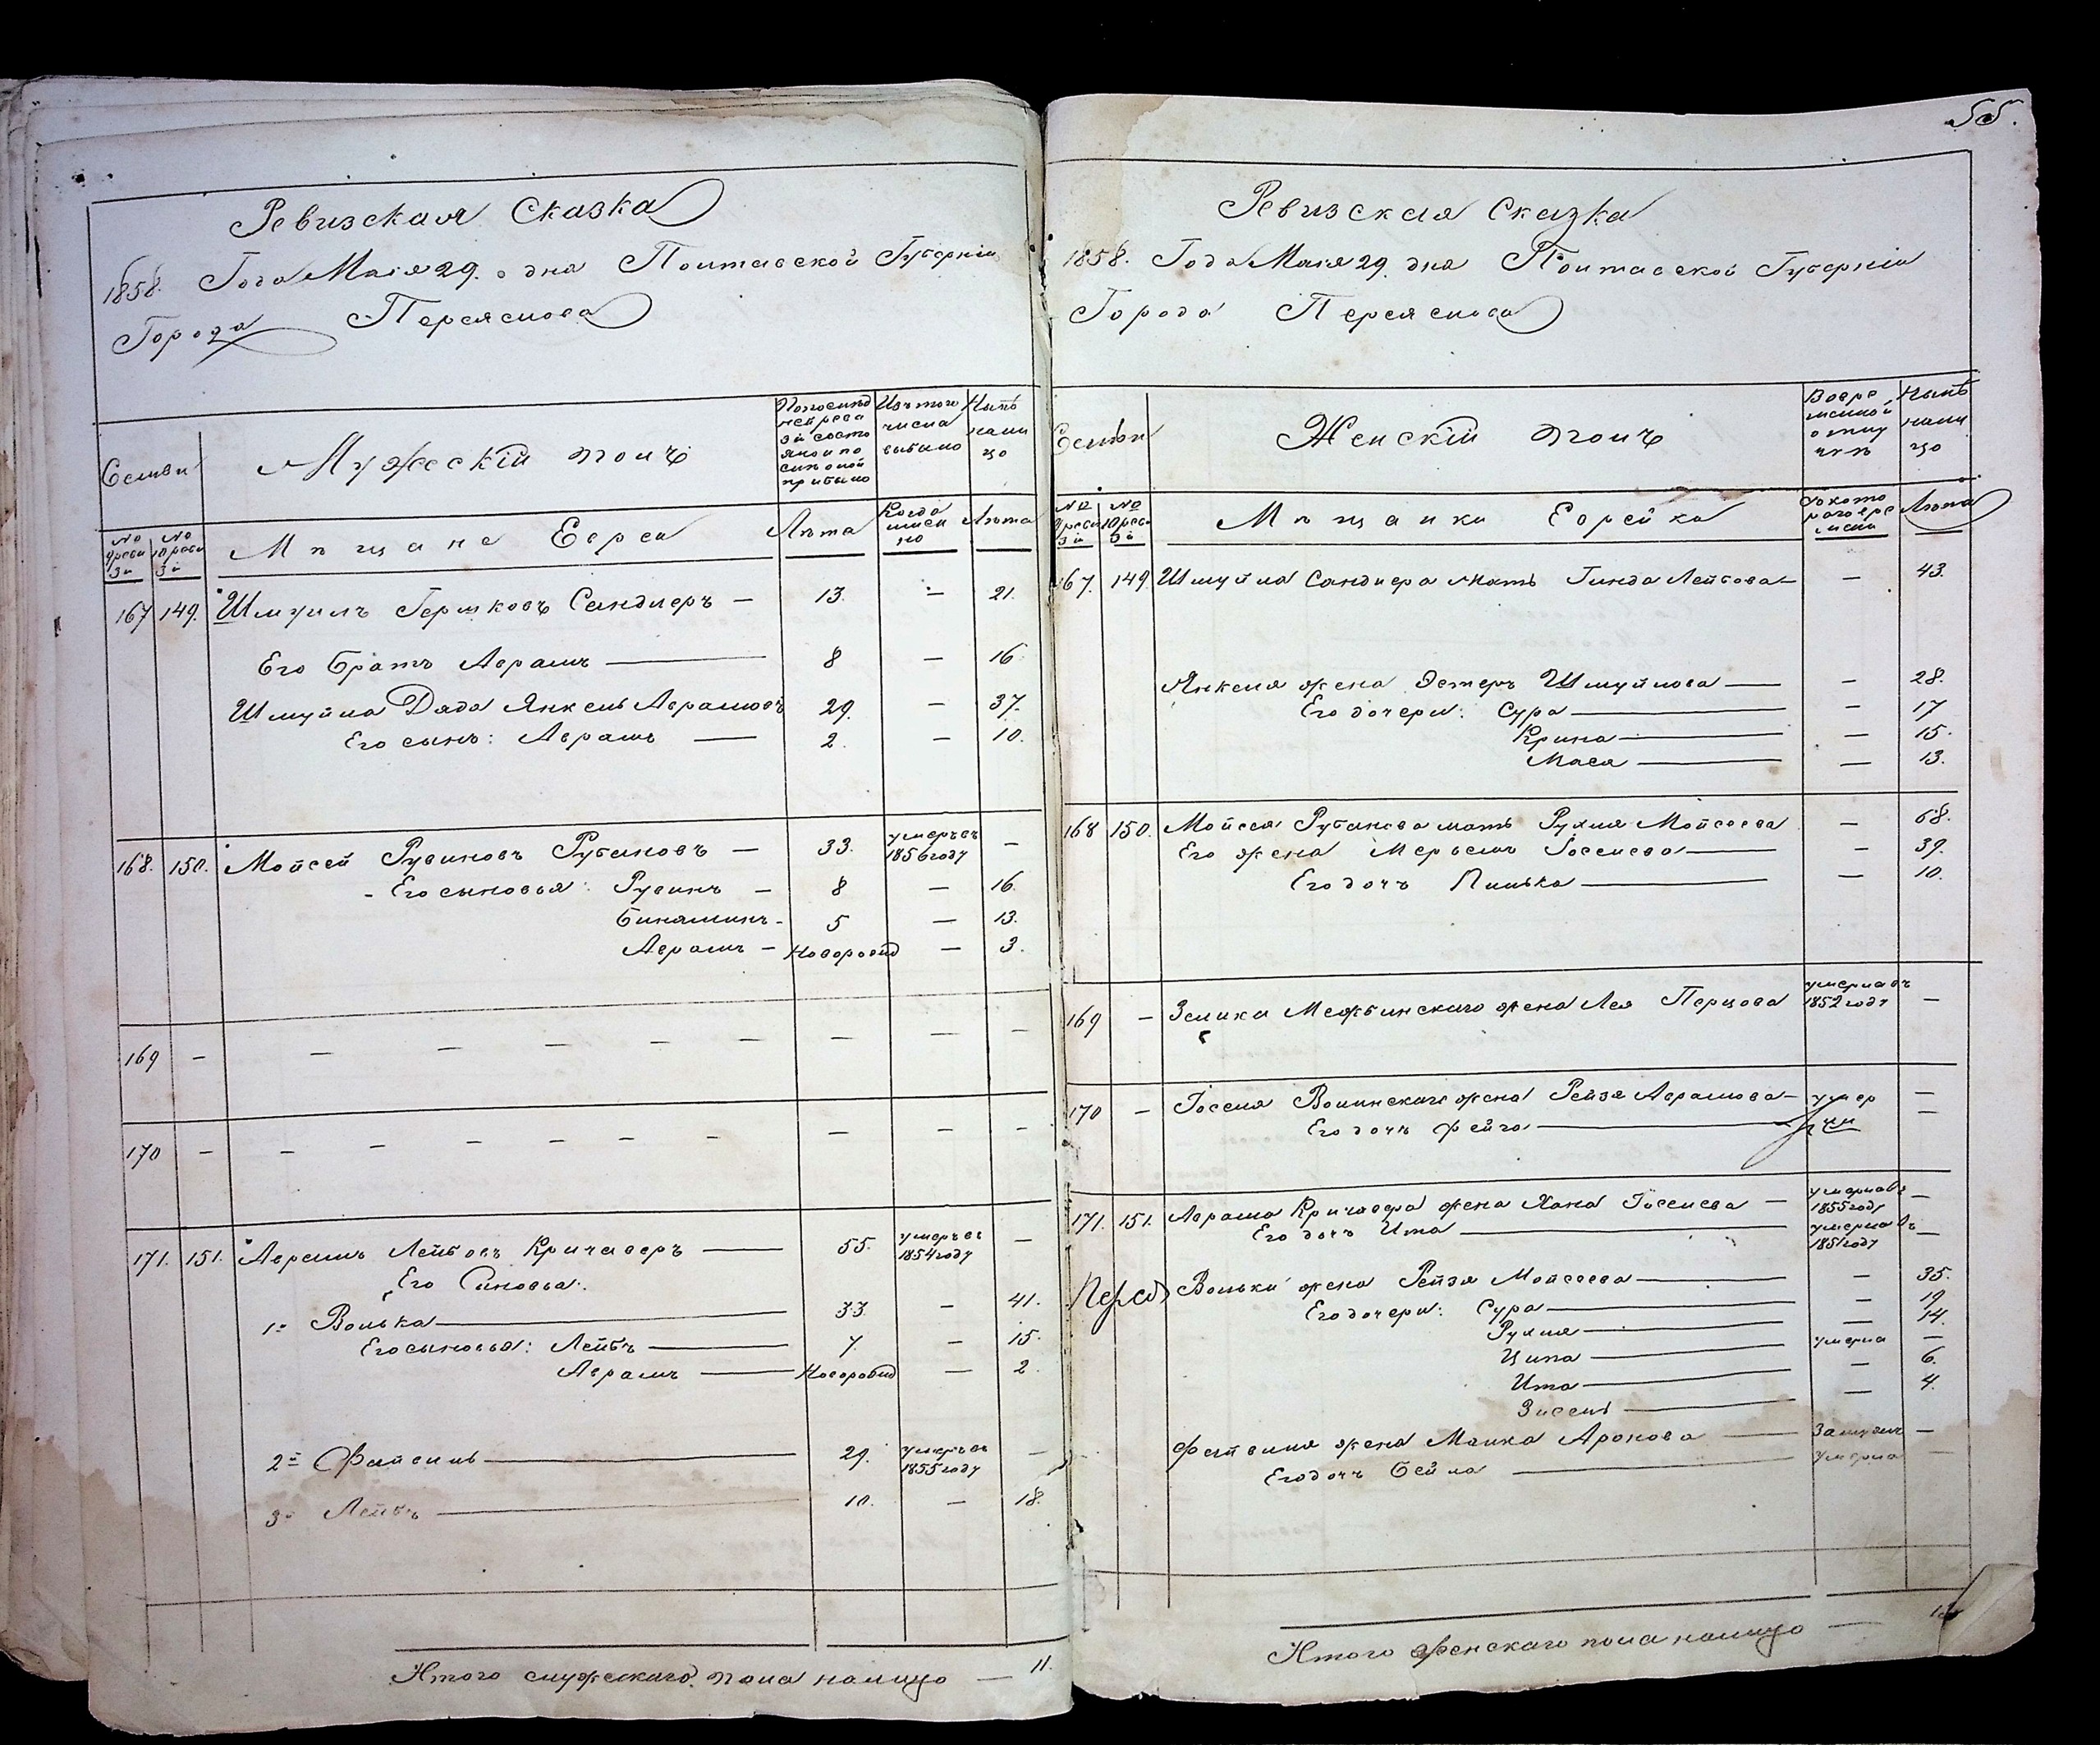 55.
Ревизская Сказка
1858. Года Маія 29. дна Полтавской Губерніи
Города Переяслова
Семьи
Мужескій полъ
По последней ревизіи состояло и после оной прибыло
Изъ того числа выбыло
Нынѣ налицо
№ 9 ревизіи
№ 10 ревизіи
Мѣщане Евреи
Лѣта
Когда именно
Лѣта
167 149. Шмуилъ Гершковъ Сандлеръ — 13. — 21.
Его братъ Аврамъ — 8 — 16
Шмуйла Дядя Янкель Аврамовъ 29. — 37.
Его сынъ: Аврамъ — 2. — 10.
168. 150. Мойсей Рувиновъ Рубановъ — 33. умеръ въ 1856 году —
Его сыновья: Рувинъ — 8 — 16.
Биняминъ - 5 — 13.
Аврамъ — Новорожд — 3.
169 — — — — — — — — — —
170 — — — — — — — — — —
171. 151. Аврамъ Лейбовъ Кричаверъ — 55. умеръ въ 1854 году —
Его Синовья:
1= Волька — 33 — 41.
Его сыновья: Лейбъ — 7. — 15.
Аврамъ — Новорожд — 2.
2= Файвишъ — 29. умеръ въ 1855 году —
3= Лейбъ — 10. — 18.
Итого мужескаго пола налицо — 11.
Ревизская Сказка
1858. Года Маія 29. дна Полтавской Губерніи
Города Переяслова
Семьи
Женскій полъ
Во временной отлучкѣ
Нынѣ налицо
№ 9 ревизіи
№ 10 ревизіи
Мѣщанки Еврейки
Съ котораго времени
Лѣта
167. 149. Шмуйла Сандлера мать Гинда Лейбова — — 43.
Янкеля жена Эстеръ Шмуйлова — — 28.
Его дочери: Сура — — 17
Крина — — 15.
Мася — — 13.
168 150. Мойсея Рубанова мать Рухля Мойсеева — 68.
Его жена Мерьемъ Іоселева — — 39.
Его дочь — — 10.
169 — Зелика Межбинскаго жена Лея Перцова умерла въ 1852 году —
170 — Іоселя Волинскаго жена Рейзя Аврамова — умер —
Его дочь Фейга — ли —
171. 151. Аврама Кричавера жена Хана Іоселева — умерла въ 1855 году —
Его дочь Ита — умерла въ 1851 году —
Вольки жена Рейзя Мойсеева — — 35.
Его дочери: Сура — — 19.
Рухля — — 14.
Ципа — умерла —
Ита — — 6.
Зисель — — 4.
Файвиша жена Малка Аронова — Замужем —
Его дочь Бейла — умерла —
Итого женскаго пола налицо —